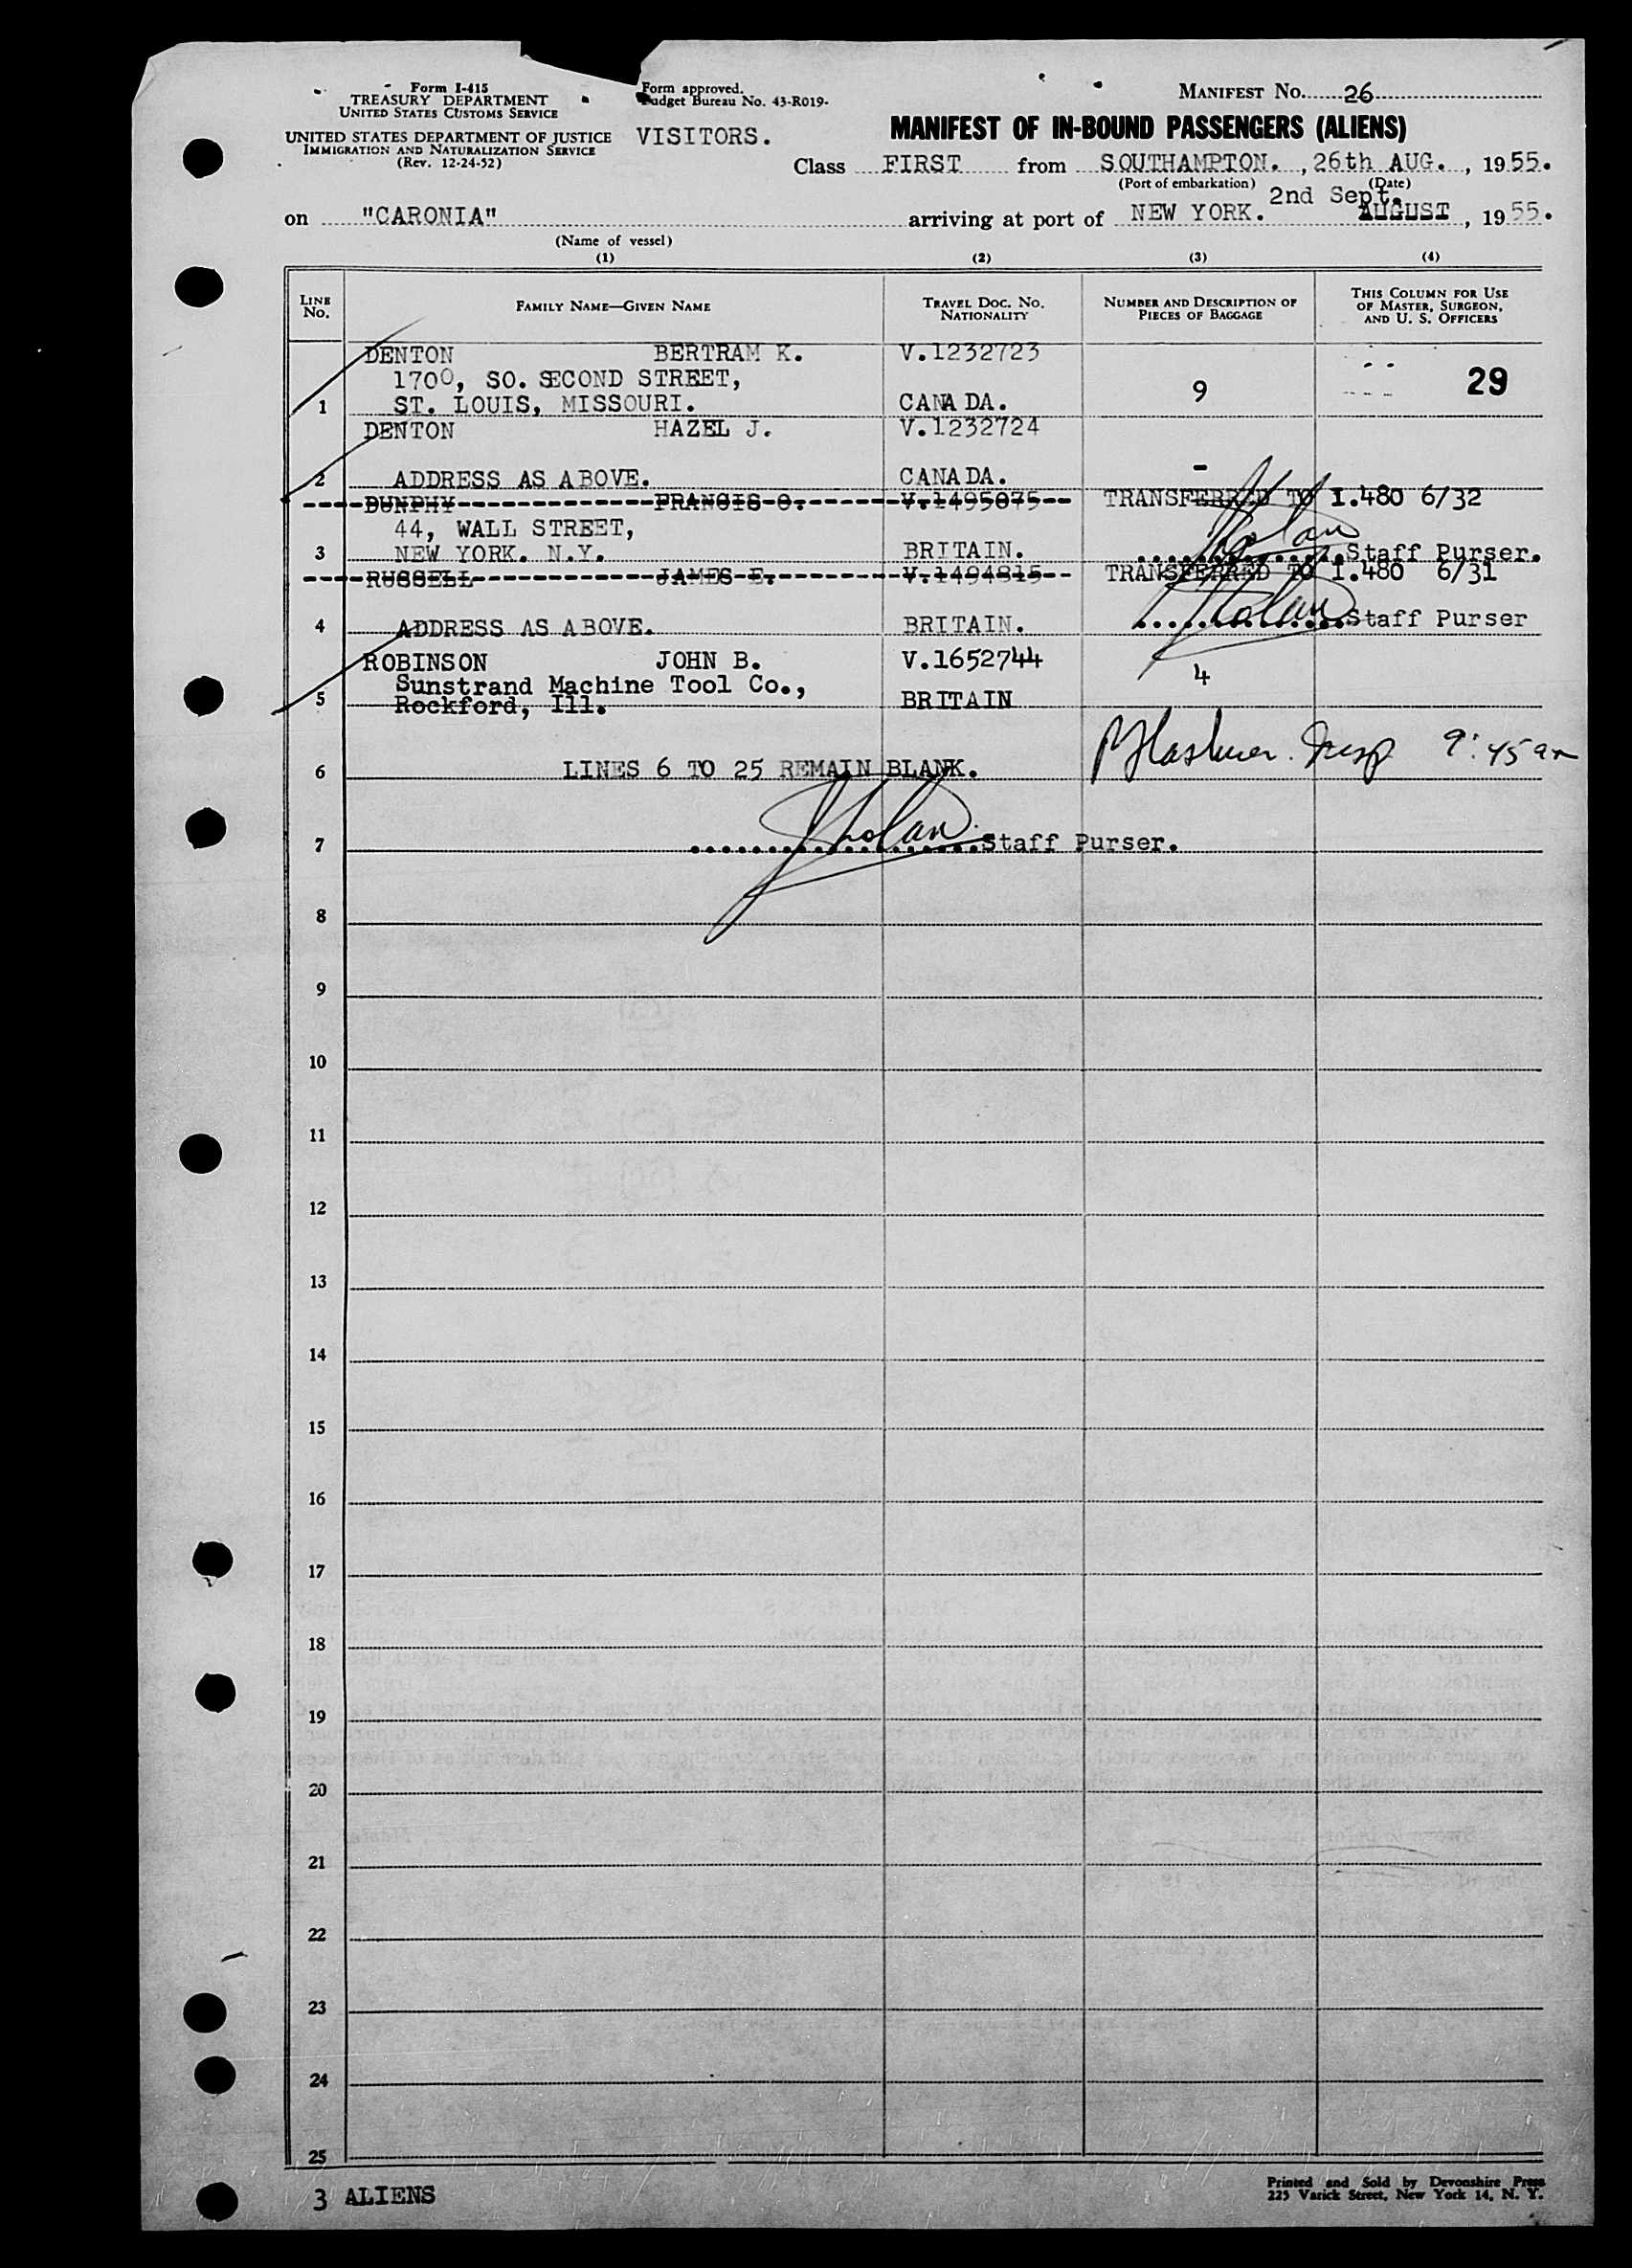 Form I-415
TREASURY DEPARTMENT
UNITED STATES CUSTOMS SERVICE
UNITED STATES DEPARTMENT OF JUSTICE
IMMIGRATION AND NATURALIZATION SERVICE
(Rev. 12-24-52)
Form approved.
Budget Bureau No. 43-R019-
VISITORS.
MANIFEST NO. 26
MANIFEST OF IN-BOUND PASSENGERS (ALIENS)
Class FIRST from SOUTHAMPTON. , 26th AUG. , 1955.
(Port of embarkation) (Date)
2nd Sept.
on "CARONIA" arriving at port of NEW YORK. AUGUST , 1955.
(Name of vessel)
(1) (2) (3) (4)
LINE NO.
FAMILY NAME—GIVEN NAME
TRAVEL DOC. NO. NATIONALITY
NUMBER AND DESCRIPTION OF PIECES OF BAGGAGE
THIS COLUMN FOR USE OF MASTER, SURGEON, AND U. S. OFFICERS
DENTON BERTRAM K. V.1232723
1700, SO. SECOND STREET, 9 29
1 ST. LOUIS, MISSOURI. CANADA.
DENTON HAZEL J. V.1232724
2 ADDRESS AS ABOVE. CANADA. -
DUNPHY FRANCIS O. V.1495075 TRANSFERRED TO I.480 6/32
44, WALL STREET,
3 NEW YORK. N.Y. BRITAIN. Staff Purser.
RUSSELL JAMES E. V.1494815 TRANSFERRED TO I.480 6/31
4 ADDRESS AS ABOVE. BRITAIN. Staff Purser
ROBINSON JOHN B. V.1652744 4
Sunstrand Machine Tool Co.,
5 Rockford, Ill. BRITAIN
9:45 am
6 LINES 6 TO 25 REMAIN BLANK.
7 Staff Purser.
8
9
10
11
12
13
14
15
16
17
18
19
20
21
22
23
24
25
3 ALIENS
Printed and Sold by Devonshire Press
225 Varick Street, New York 14, N. Y.